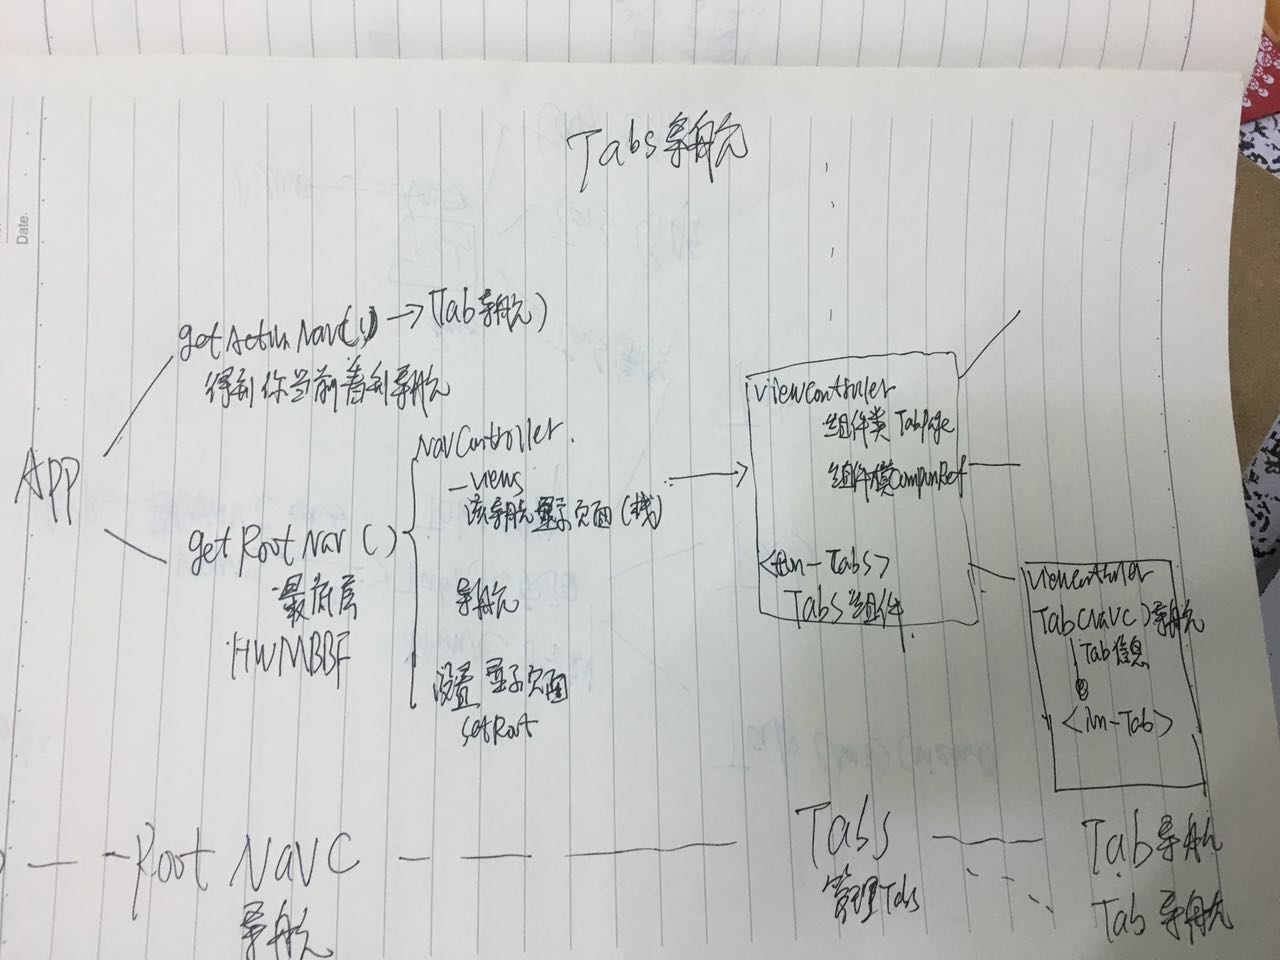 Date.
Tabs 导航
getActivNav() → (Tab 导航)
得到你当前看到导航
APP
getRootNav()
最底层
HWMBBF
NavController.
_views
该导航显示页面(栈)
导航
设置 显示页面
setRoot
ViewController
组件类 TabPage
<ion-Tabs>
Tabs 组件
ViewController
Tab(NavC)导航
Tab 信息
<ion-Tab>
Root NavC
导航
Tabs
管理Tabs
Tab 导航
Tab 导航